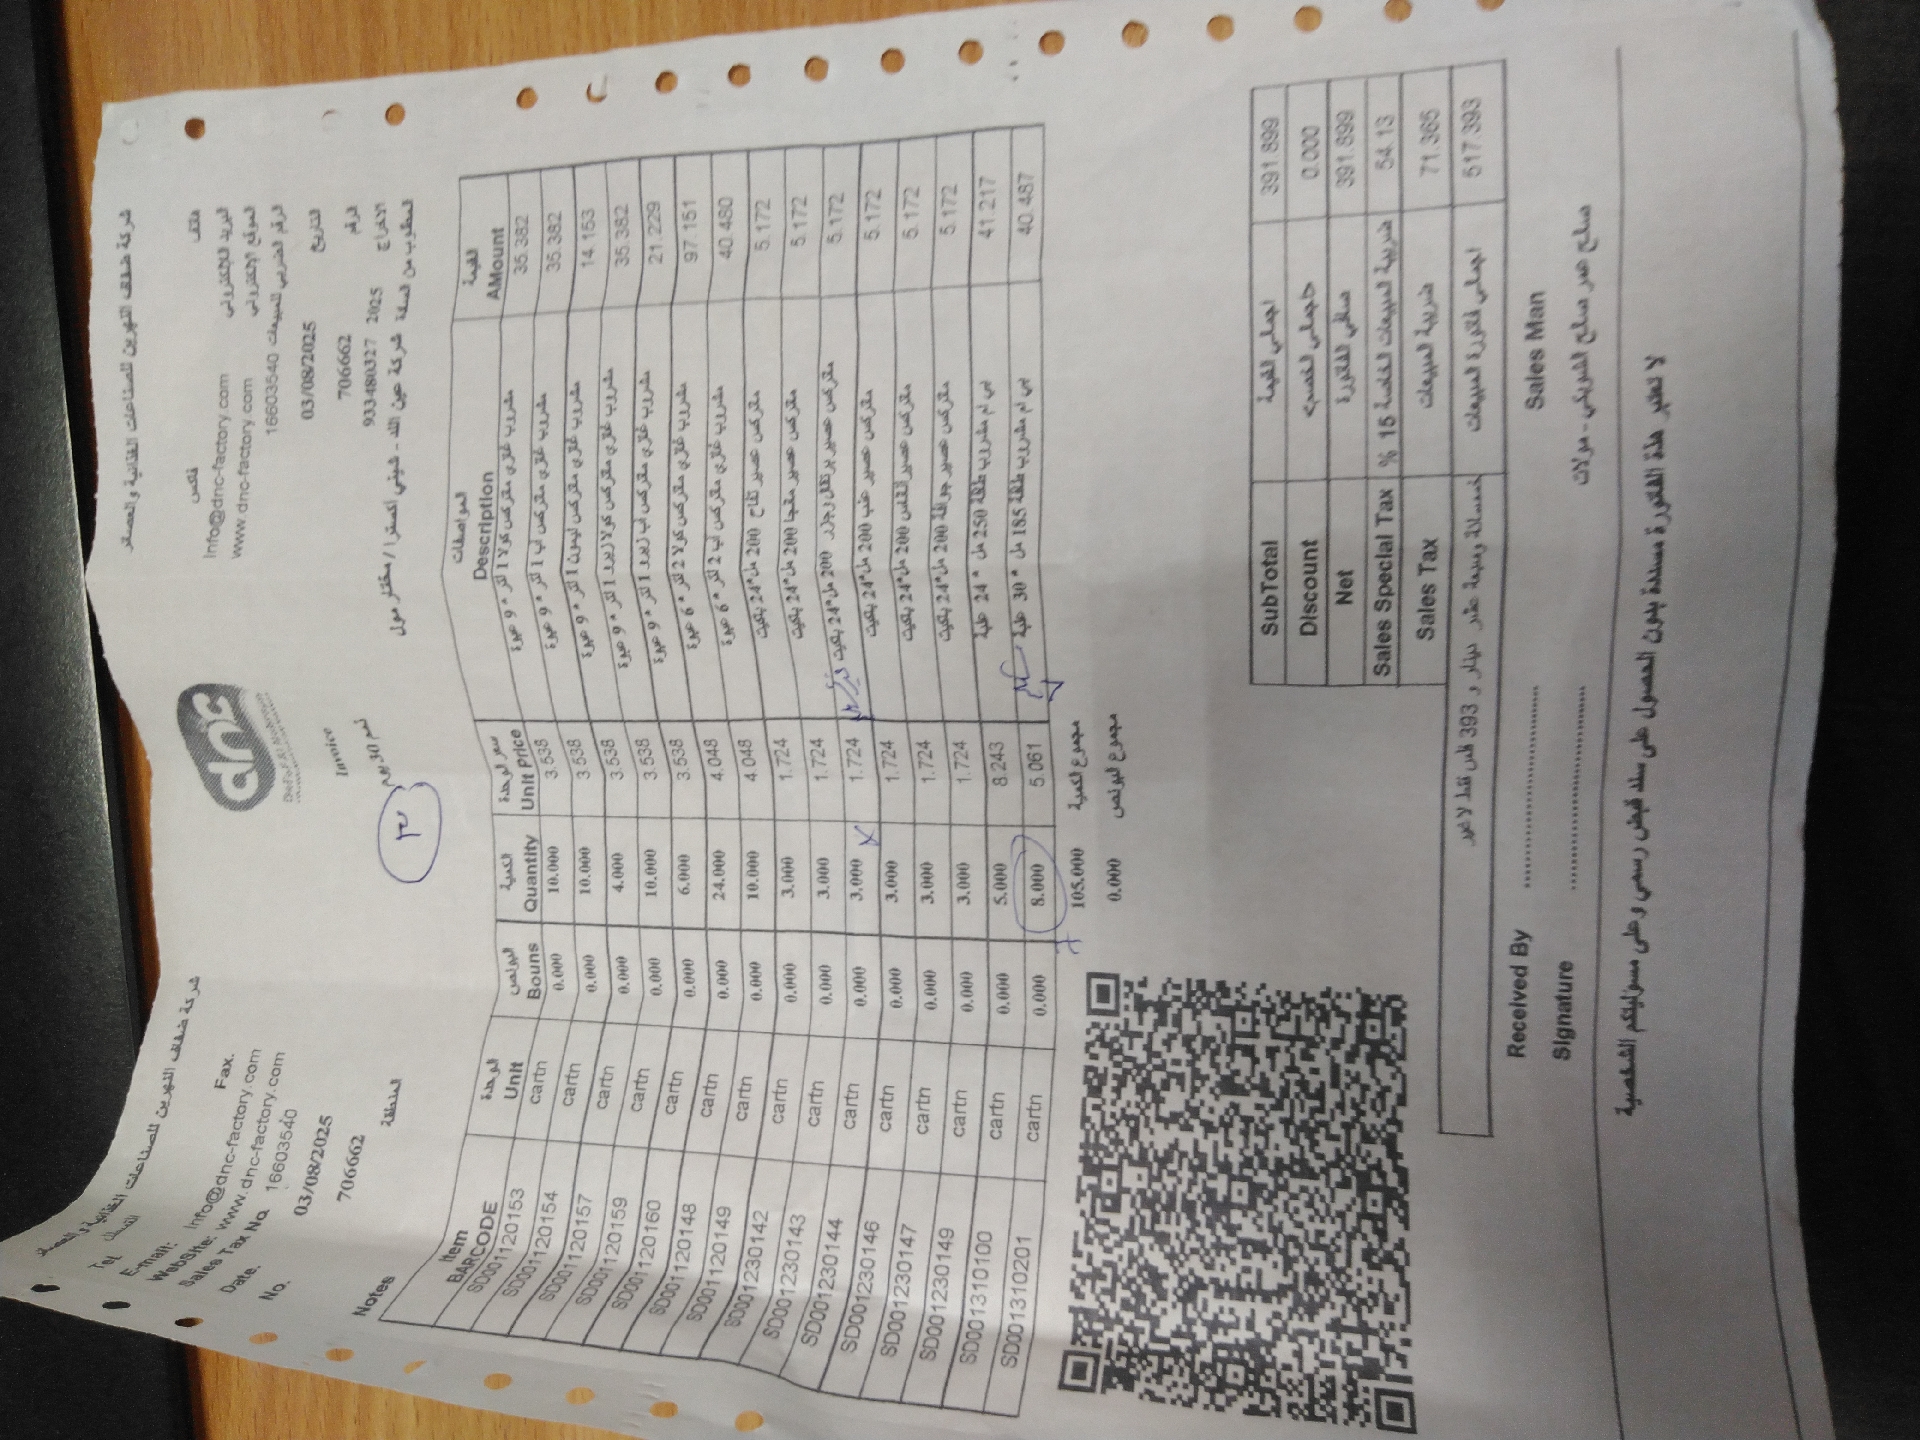 شركة ضفاف النهرين للصناعات الغذائية والعصائر
شركة ضفاف النهرين للصناعات الغذائية والعصائر
dnc
Tel
هاتف
Fax.
فاكس
E-mail: Info@dnc-factory.com
Info@dnc-factory.com البريد الالكتروني
WebSite: www.dnc-factory.com
www.dnc-factory.com الموقع الالكتروني
Sales Tax No. 16603540
16603540 الرقم الضريبي للمبيعات
Date. 03/08/2025
Invoice
03/08/2025 التاريخ
No. 706662
ذمم 30 يوم
706662 الرقم
933480327 2025
المنطقة
٣
المطلوب من السادة شركة عين الله - شيني اكسترا / مختار مول
Notes
Item BARCODE | الوحدة Unit | البونص Bouns | الكمية Quantity | سعر الوحدة Unit Price | المواصفات Description | القيمة AMount
SD001120153 cartn 0.000 10.000 3.538 مشروب غازي متركس كولا 1 لتر * 9 عبوة 35.382
SD001120154 cartn 0.000 10.000 3.538 مشروب غازي متركس اب 1 لتر * 9 عبوة 35.382
SD001120157 cartn 0.000 4.000 3.538 مشروب غازي متركس ليمون 1 لتر * 9 عبوة 14.153
SD001120159 cartn 0.000 10.000 3.538 مشروب غازي متركس كولا زيرو 1 لتر * 9 عبوة 35.382
SD001120160 cartn 0.000 6.000 3.538 مشروب غازي متركس اب زيرو 1 لتر * 9 عبوة 21.229
SD001120148 cartn 0.000 24.000 4.048 مشروب غازي متركس كولا 2 لتر * 6 عبوة 97.151
SD001120149 cartn 0.000 10.000 4.048 مشروب غازي متركس اب 2 لتر * 6 عبوة 40.480
SD001230142 cartn 0.000 3.000 1.724 متركس عصير تفاح 200 مل*24 بكيت 5.172
SD001230143 cartn 0.000 3.000 1.724 متركس عصير مانجا 200 مل*24 بكيت 5.172
SD001230144 cartn 0.000 3.000 1.724 متركس عصير برتقال وجزر 200 مل*24 بكيت 5.172
SD001230146 cartn 0.000 3.000 1.724 متركس عصير عنب 200 مل*24 بكيت 5.172
SD001230147 cartn 0.000 3.000 1.724 متركس عصير اناناس 200 مل*24 بكيت 5.172
SD001230149 cartn 0.000 3.000 1.724 متركس عصير جوافة 200 مل*24 بكيت 5.172
SD001310100 cartn 0.000 5.000 8.243 بي ام مشروب طاقة 250 مل * 24 علبة 41.217
SD001310201 cartn 0.000 8.000 5.061 بي ام مشروب طاقة 185 مل * 30 علبة 40.487
105.000 مجموع الكمية
0.000 مجموع البونص
SubTotal اجمالي القيمة 391.899
Discount اجمالي الخصم 0.000
Net صافي الفاتورة 391.899
Sales Special Tax ضريبة المبيعات الخاصة 15 % 54.13
Sales Tax ضريبة المبيعات 71.365
خمسمائة وسبعة عشر دينار و 393 فلس فقط لا غير
اجمالي فاتورة المبيعات 517.393
Received By
Sales Man
Signature
صالح عمر صالح الشوبكي - مولات
لا تعتبر هذه الفاتورة مسددة بدون الحصول على سند قبض رسمي وعلى مسؤوليتكم الشخصية